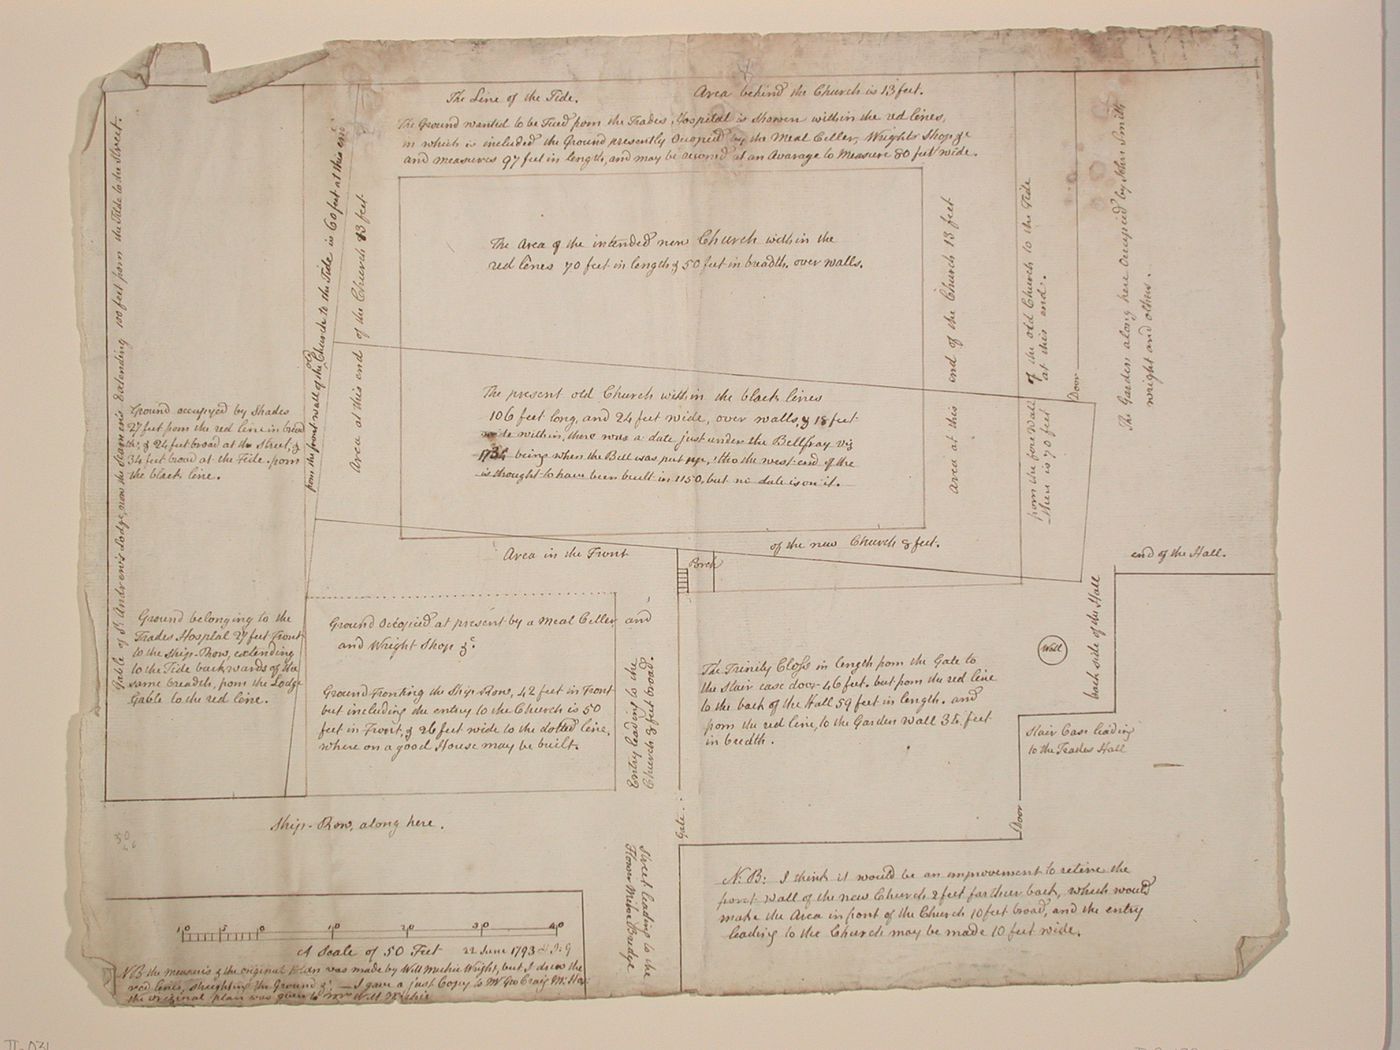 The Line of the Tide.
Area behind the Church is 13 feet.
The Ground wanted to be Fued from the Trades Hospital is Shown within the red lines,
in which is included the Ground presently Occupied by the Meal Celler, Wrights Shop &c
and measures 97 feet in length, and may be at an Avarage to Measure 80 feet wide.
The Area of the intended new Church within the
red lines 70 feet in length & 50 feet in breadth, over walls.
The present old Church within the black lines
106 feet long, and 24 feet wide, over walls, & 18 feet
wide within, there was a date just under the Bellfray viz
being when the Bell was put up, tho the west end of the
is thought to have been built in 1150, but no date is on it.
Gable of St. Andrew's Lodge, now the extending 100 feet from the Tide to the Street.
from the front wall of the old Church to the Tide is 60 feet at this end
Area at this end of the Church 13 feet
Area at this end of the Church 13 feet
from the fore Wall of the old Church to the Tide
there is 70 feet at this end.
Door
The Garden along here Occupied by John Smith
wright and others.
Ground occupyed by Shades
27 feet from the red line in bread
th, & 24 feet broad at the Street, &
34 feet broad at the Tide from
the black line.
Area in the Front
of the new Church 8 feet.
Porch
end of the Hall.
back side of the Hall
Well
Ground belonging to the
Trades Hospital 27 feet Front
to the Ship-Row, extending
to the Tide backwards of the
same breadth, from the Lodge
Gable to the red line.
Ground Occupied at present by a Meal Celler and
and Wright Shop &c
Ground Fronting the Ship Row, 42 feet in Front
but including the entry to the Church is 50
feet in Front, & 26 feet wide to the dotted line,
where on a good House may be built.
Entry leading to the
Church 8 feet broad.
The Trinity Closs in length from the Gate to
the Stair case door 46 feet. but from the red line
to the back of the Hall 59 feet in length. and
from the red line, to the Garden Wall 36 feet
in bredth.
Stair Case leading
to the Trades Hall
Door
Gate.
Ship-Row, along here.
Street leading to the
N.B: I think it would be an improvement to retire the
front wall of the new Church 2 feet farther back, which would
make the Area in front of the Church 10 feet broad, and the entry
leading to the Church may be made 10 feet wide.
10 5 0 10 20 30 40
A Scale of 50 Feet 22 June 1793
NB the measuris & the original Plan was made by Will Wright, but I drew the
red lines, the Ground &c — I gave a just Copy to Mr Geo Craig
the original plan was given to Mr Will